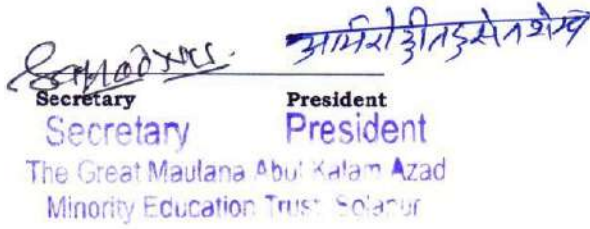 Secretary President
Secretary President
The Great Maulana Abul Kalam Azad
Minority Education Trust Solapur